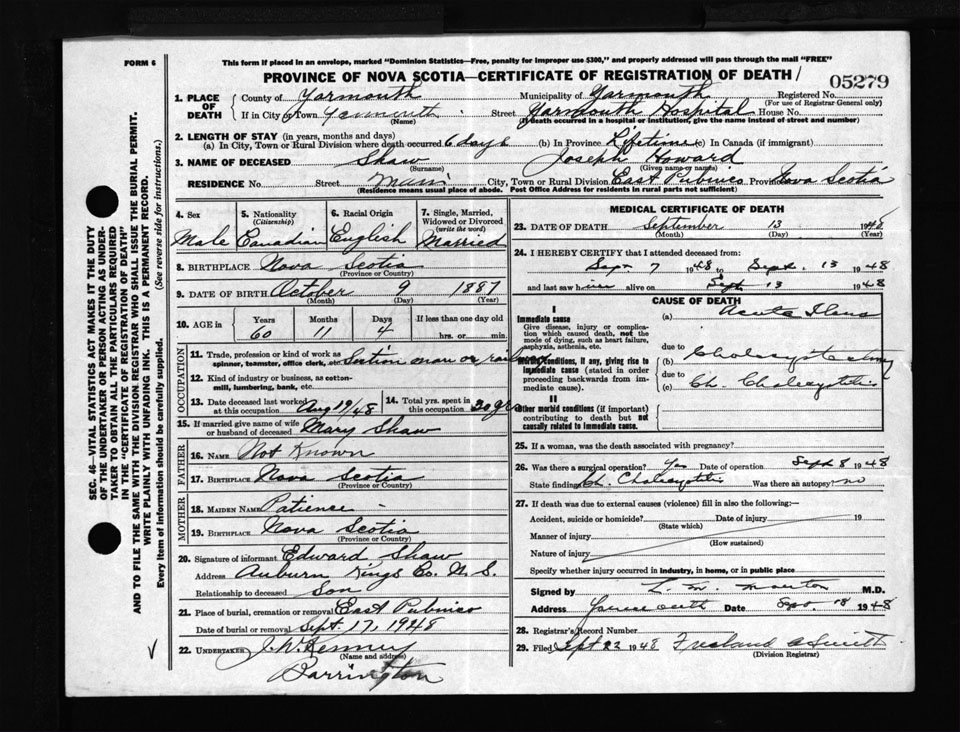 FORM 6
This form if placed in an envelope, marked "Dominion Statistics—Free, penalty for improper use $300," and properly addressed will pass through the mail "FREE"
PROVINCE OF NOVA SCOTIA—CERTIFICATE OF REGISTRATION OF DEATH
05279
1. PLACE OF DEATH
County of Yarmouth Municipality of Yarmouth Registered No.
(For use of Registrar General only)
If in City or Town Yarmouth Street Yarmouth Hospital House No.
(Name) (If death occurred in a hospital or institution, give the name instead of street and number)
2. LENGTH OF STAY (in years, months and days)
(a) In City, Town or Rural Division where death occurred 6 days (b) In Province Lifetime (c) In Canada (if immigrant)
3. NAME OF DECEASED Shaw Joseph Howard
(Surname) (Given name or names)
RESIDENCE No. Street Main City, Town or Rural Division East Pubnico Province Nova Scotia
(Residence means usual place of abode. Post Office Address for residents in rural parts not sufficient)
4. Sex
Male
5. Nationality
(Citizenship)
Canadian
6. Racial Origin
English
7. Single, Married, Widowed or Divorced
(write the word)
Married
8. BIRTHPLACE Nova Scotia
(Province or Country)
9. DATE OF BIRTH October 9 1887
(Month) (Day)
10. AGE in Years Months Days If less than one day
60 11 4 hrs. or min.
OCCUPATION
11. Trade, profession or kind of work as spinner, teamster, office clerk, etc. Section man on railway
12. Kind of industry or business, as cotton-mill, lumbering, bank, etc.
13. Date deceased last worked at this occupation Aug 19/48
14. Total yrs. spent in this occupation 20 yrs
15. If married give name of wife or husband of deceased Mary Shaw
FATHER
16. NAME Not Known
17. BIRTHPLACE Nova Scotia
(Province or Country)
MOTHER
18. MAIDEN NAME Patience -
19. BIRTHPLACE Nova Scotia
(Province or Country)
20. Signature of informant Edward Shaw
Address Auburn Kings Co. N.S.
Relationship to deceased Son
21. Place of burial, cremation or removal East Pubnico
Date of burial or removal Sept. 17, 1948
22. UNDERTAKER J. W. Kenney
(Name and address)
Barrington
MEDICAL CERTIFICATE OF DEATH
23. DATE OF DEATH September 13 1948
(Month) (Day)
24. I HEREBY CERTIFY that I attended deceased from:
Sept 7 1948 to Sept. 13 1948
and last saw him alive on Sept 13 1948
CAUSE OF DEATH
I
Immediate cause
Give disease, injury or complication which caused death, not the mode of dying, such as heart failure, asphyxia, asthenia, etc.
(a) Acute Ileus
due to
Morbid conditions, if any, giving rise to immediate cause (stated in order proceeding backwards from immediate cause).
(b) Cholecystectomy
due to
(c) Ch. Cholecystitis
II
Other morbid conditions (if important) contributing to death but not causally related to immediate cause.
25. If a woman, was the death associated with pregnancy?
26. Was there a surgical operation? Yes Date of operation Sept 8 1948
State findings Ch. Cholecystitis Was there an autopsy? no
27. If death was due to external causes (violence) fill in also the following:—
Accident, suicide or homicide? Date of injury 19
(State which)
Manner of injury
(How sustained)
Nature of injury
Specify whether injury occurred in industry, in home, or in public place
Signed by L. M. Morton M.D.
Address Yarmouth Date Sept 18 1948
28. Registrar's Record Number
29. Filed Sept 22 1948 Freeland A Smith
(Division Registrar)
SEC. 46—VITAL STATISTICS ACT MAKES IT THE DUTY OF THE UNDERTAKER OR PERSON ACTING AS UNDERTAKER TO OBTAIN ALL THE PARTICULARS REQUIRED IN THE "CERTIFICATE OF REGISTRATION OF DEATH" AND TO FILE THE SAME WITH THE DIVISION REGISTRAR WHO SHALL ISSUE THE BURIAL PERMIT.
WRITE PLAINLY WITH UNFADING INK. THIS IS A PERMANENT RECORD.
Every item of information should be carefully supplied. (See reverse side for instructions.)